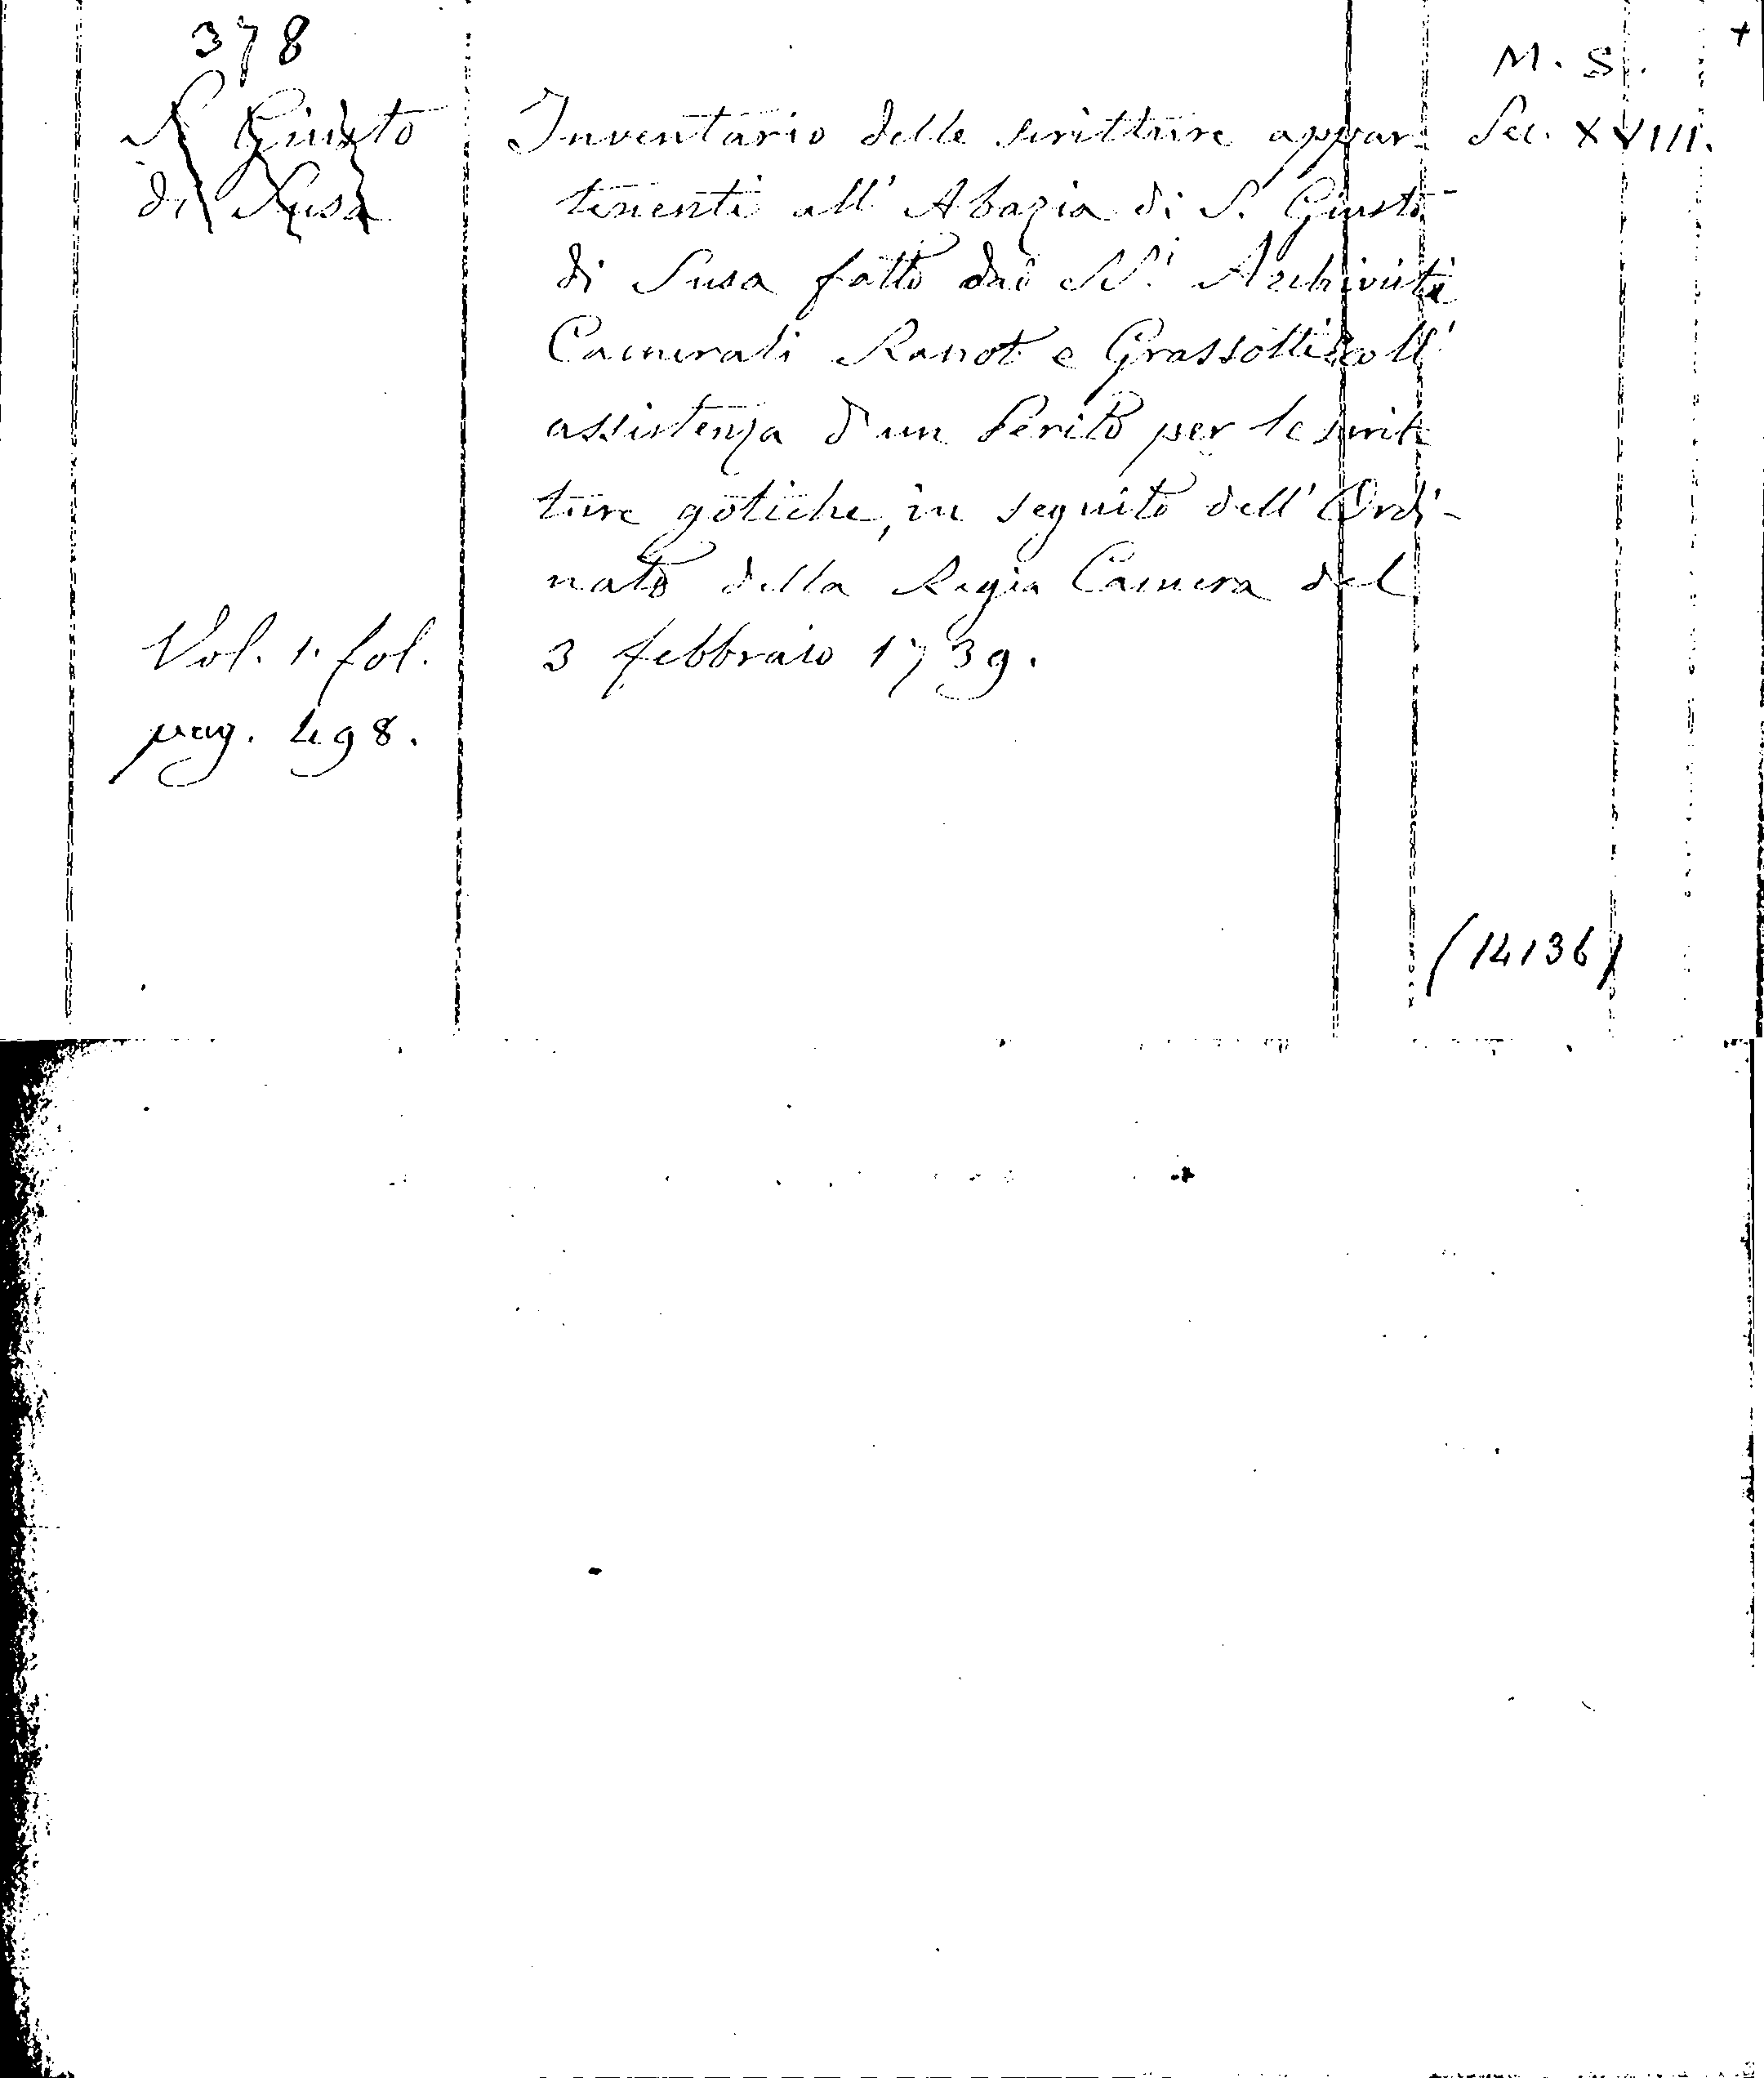 378
S. Giusto
di Susa
Vol. 1. fol.
pag. 498.
Inventario delle scritture appar-
tenenti all' Abazia di S. Giusto
di Susa fatto dai Sri. Archivisti
Camerali Ranot e Grassotti coll'
assistenza d'un Perito per le scrit-
ture gotiche, in seguito dell' Ordi-
nato della Regia Camera del
3 febbraio 1739.
M. S.
Sec. XVIII.
(14136)
+